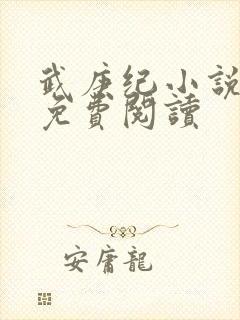 武庚纪小説
免費閱讀
安庸龍